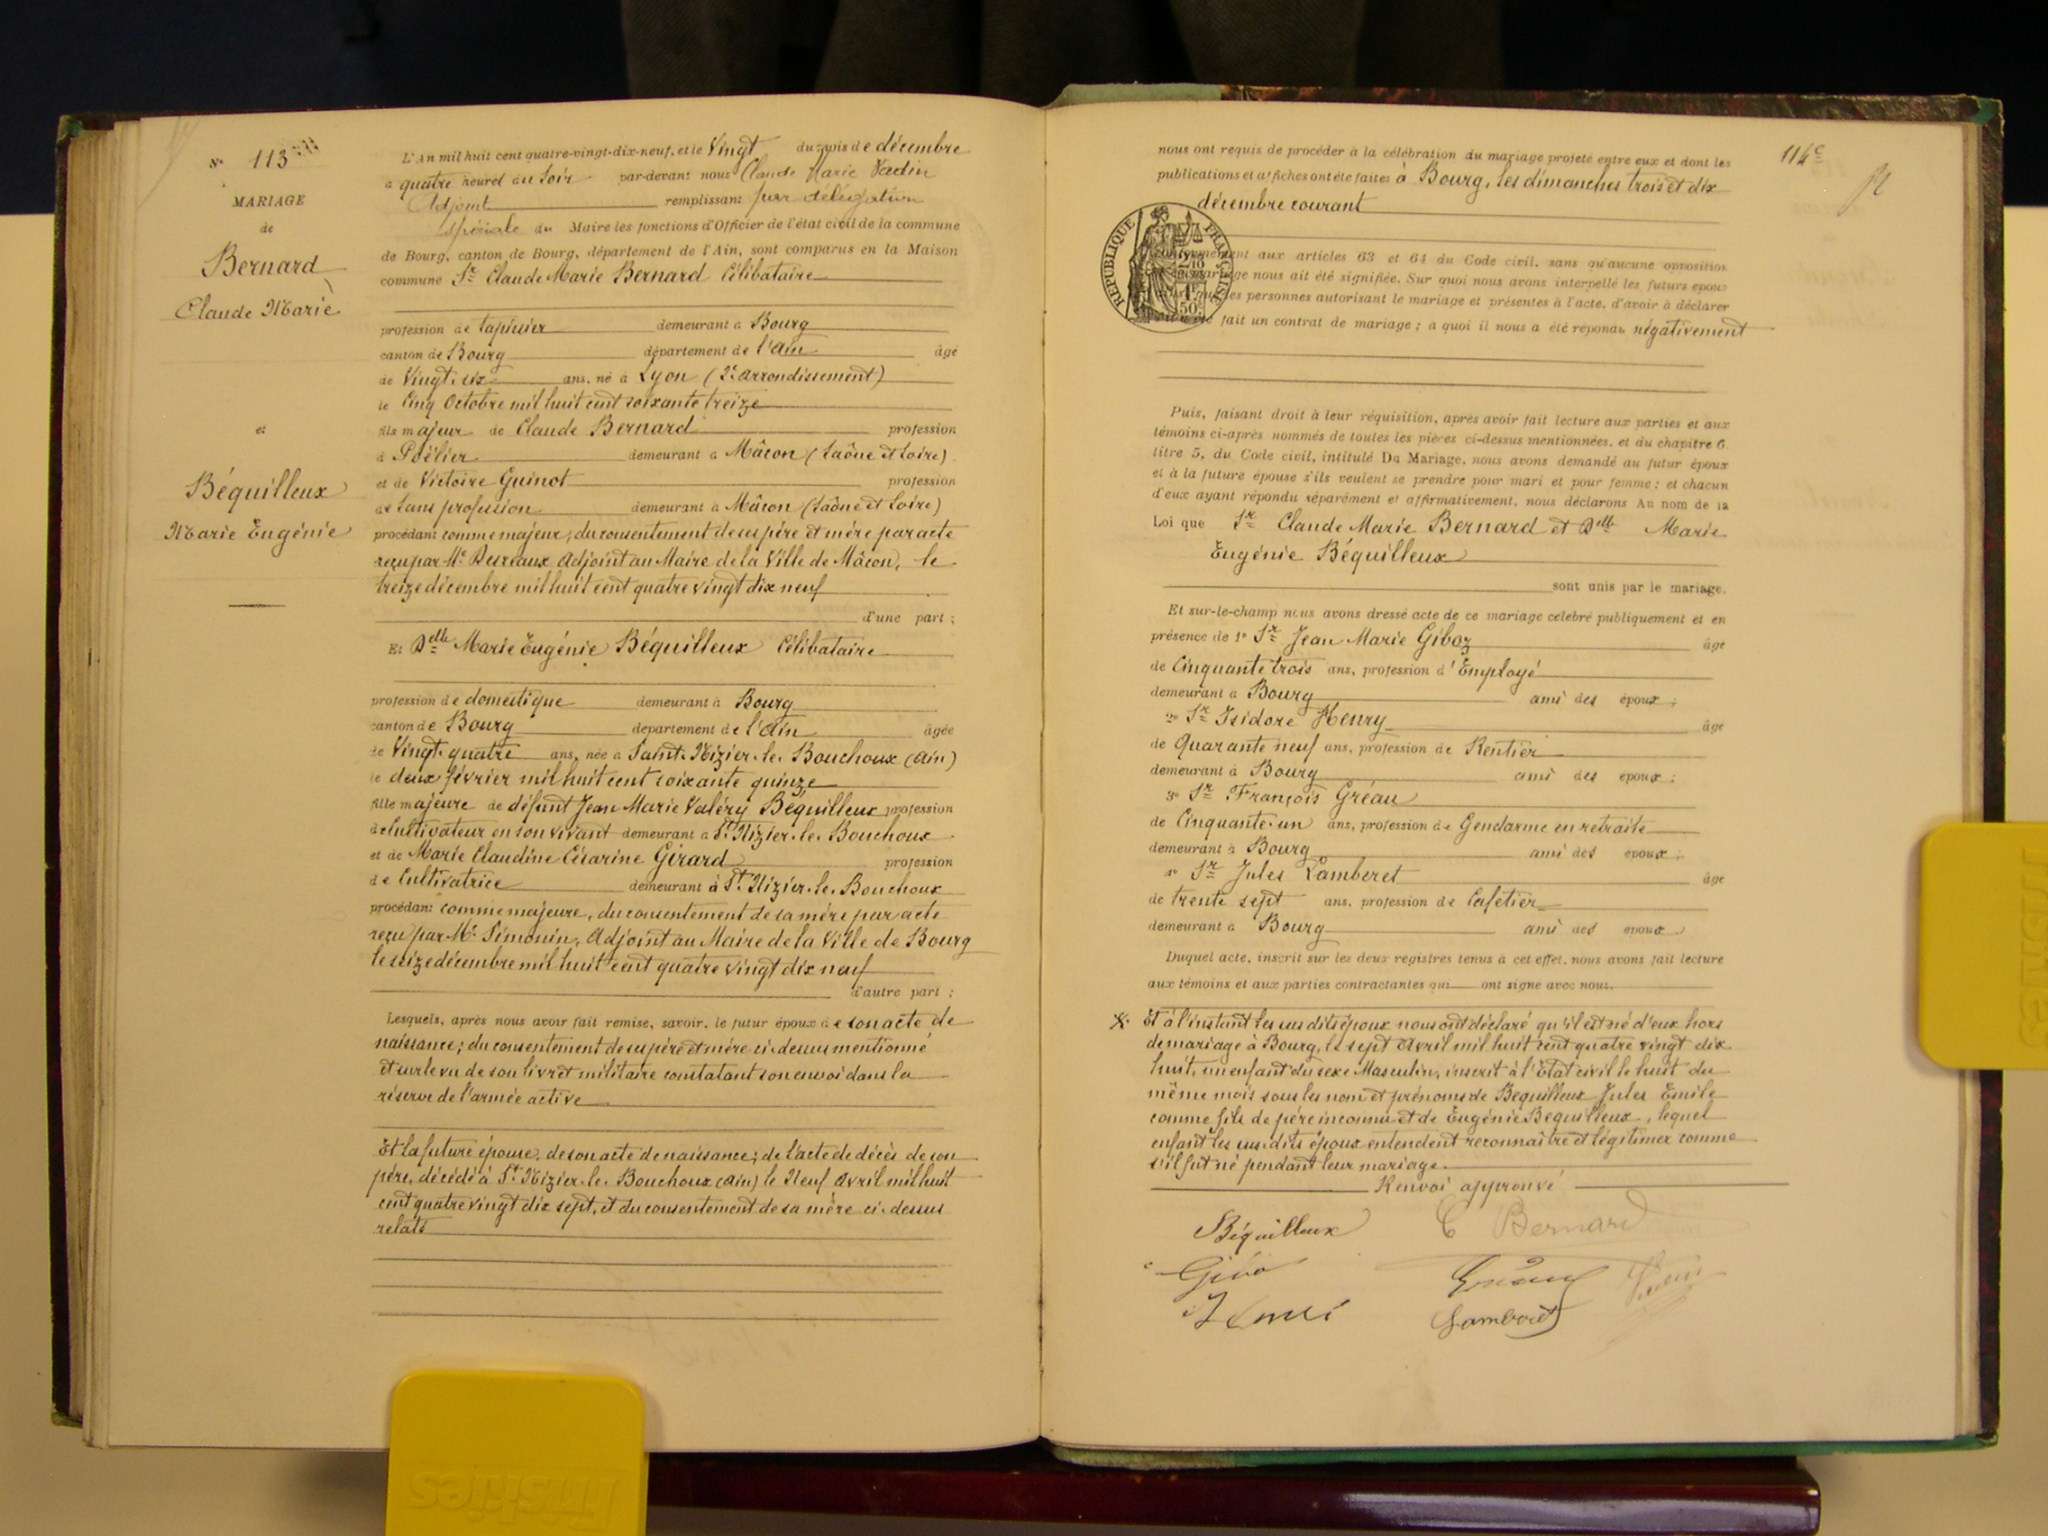 N° 113
MARIAGE
de
Bernard
Claude Marie
et
Béquilleux
Marie Eugénie
L'An mil huit cent quatre-vingt-dix-neuf, et le Vingt du mois de décembre
a quatre heures du Soir par-devant nous Claude Marie
Adjoint remplissant par délégation
spéciale du Maire les fonctions d'Officier de l'état civil de la commune
de Bourg, canton de Bourg, département de l'Ain, sont comparus en la Maison
commune Sr Claude Marie Bernard Célibataire
profession de tapissier demeurant à Bourg
canton de Bourg département de l'Ain âgé
de Vingt-six ans, né à Lyon (2e arrondissement)
le Cinq Octobre mil huit cent soixante treize
fils majeur de Claude Bernard profession
d Poëlier demeurant à Mâcon (Saône et Loire)
et de Victoire Guinot profession
de Sans profession demeurant à Mâcon (Saône et Loire)
procédant comme majeur, du consentement de ses père et mère par acte
reçu par Mr Adjoint au Maire de la Ville de Mâcon, le
treize décembre mil huit cent quatre vingt dix neuf
d'une part ;
Et Delle Marie Eugénie Béquilleux Célibataire
profession de domestique demeurant à Bourg
canton de Bourg département de l'Ain âgée
de Vingt-quatre ans, née à Saint-Nizier-le-Bouchoux (Ain)
le deux février mil huit cent soixante quinze
fille majeure de défunt Jean Marie Valéry Béquilleux profession
de Cultivateur en son vivant demeurant à St Nizier-le-Bouchoux
et de Marie Claudine Césarine Girard profession
de Cultivatrice demeurant à St Nizier-le-Bouchoux
procédant comme majeure, du consentement de sa mère par acte
reçu par Mr Simonin, Adjoint au Maire de la Ville de Bourg
le seize décembre mil huit cent quatre vingt dix neuf
d'autre part ;
Lesquels, après nous avoir fait remise, savoir, le futur époux de son acte de
naissance ; du consentement de ses père et mère ci-dessus mentionné
et sur le vu de son livret militaire constatant son envoi dans la
réserve de l'armée active
Et la future épouse, de son acte de naissance ; de l'acte de décès de son
père, décédé à St Nizier-le-Bouchoux (Ain) le Neuf Avril mil huit
cent quatre vingt dix sept, et du consentement de sa mère ci-dessus
relaté
114e
nous ont requis de procéder à la célébration du mariage projeté entre eux et dont les
publications et affiches ont été faites à Bourg, les dimanches trois et dix
décembre courant
RÉPUBLIQUE FRANÇAISE
conformément aux articles 63 et 64 du Code civil, sans qu'aucune opposition
mariage nous ait été signifiée. Sur quoi nous avons interpellé les futurs époux
que les personnes autorisant le mariage et présentes à l'acte, d'avoir à déclarer
fait un contrat de mariage ; a quoi il nous a été répondu négativement
Puis, faisant droit à leur réquisition, après avoir fait lecture aux parties et aux
témoins ci-après nommés de toutes les pièces ci-dessus mentionnées, et du chapitre 6
titre 5, du Code civil, intitulé Du Mariage, nous avons demandé au futur époux
et à la future épouse s'ils veulent se prendre pour mari et pour femme ; et chacun
d'eux ayant répondu séparément et affirmativement, nous déclarons Au nom de la
Loi que Sr Claude Marie Bernard et Delle Marie
Eugénie Béquilleux
sont unis par le mariage.
Et sur-le-champ nous avons dressé acte de ce mariage célébré publiquement et en
présence de 1° Sr Jean Marie Giboz âgé
de Cinquante trois ans, profession d'Employé
demeurant à Bourg ami des époux ;
2° Sr Isidore Henry âgé
de Quarante neuf ans, profession de Rentier
demeurant à Bourg ami des époux ;
3° Sr François Gréau
de Cinquante-un ans, profession de Gendarme en retraite
demeurant à Bourg ami des époux ;
4° Sr Jules Lamberet âgé
de trente sept ans, profession de Cafetier
demeurant à Bourg ami des époux
Duquel acte, inscrit sur les deux registres tenus à cet effet, nous avons fait lecture
aux témoins et aux parties contractantes qui ont signé avec nous.
Et à l'instant les susdits époux nous ont déclaré qu'il est né d'eux hors
de mariage à Bourg, le sept Avril mil huit cent quatre vingt dix
huit, un enfant du sexe Masculin, inscrit à l'État civil le huit du
même mois sous les nom et prénoms de Bequilleux Jules Emile
comme fils de père inconnu et de Eugénie Bequilleux, lequel
enfant les susdits époux entendent reconnaître et légitimer comme
s'il fut né pendant leur mariage.
Renvoi approuvé
Béquilleux C Bernard
Gréau
Lamberet